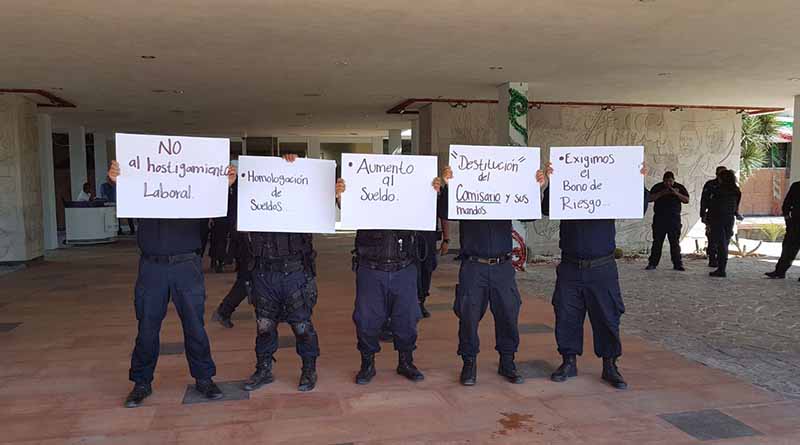 NO
al hostigamiento
Laboral.
• Homologación
de
Sueldos...
• Aumento
al
Sueldo.
"Destitución"
del
Comisario y sus
mandos
• Exigimos
el
Bono de
Riesgo...